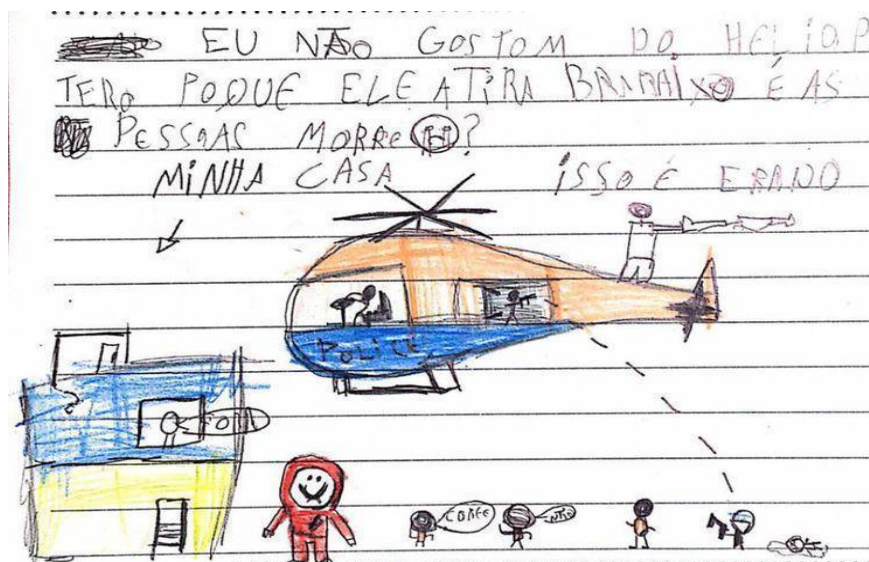 EU NÃO GOSTOM DO HELIOP
TERO POQUE ELE ATIRA É AS
PESSOAS MORRE ?
MINHA CASA ISSO É ERADO
POLICE
CORRE NÃO